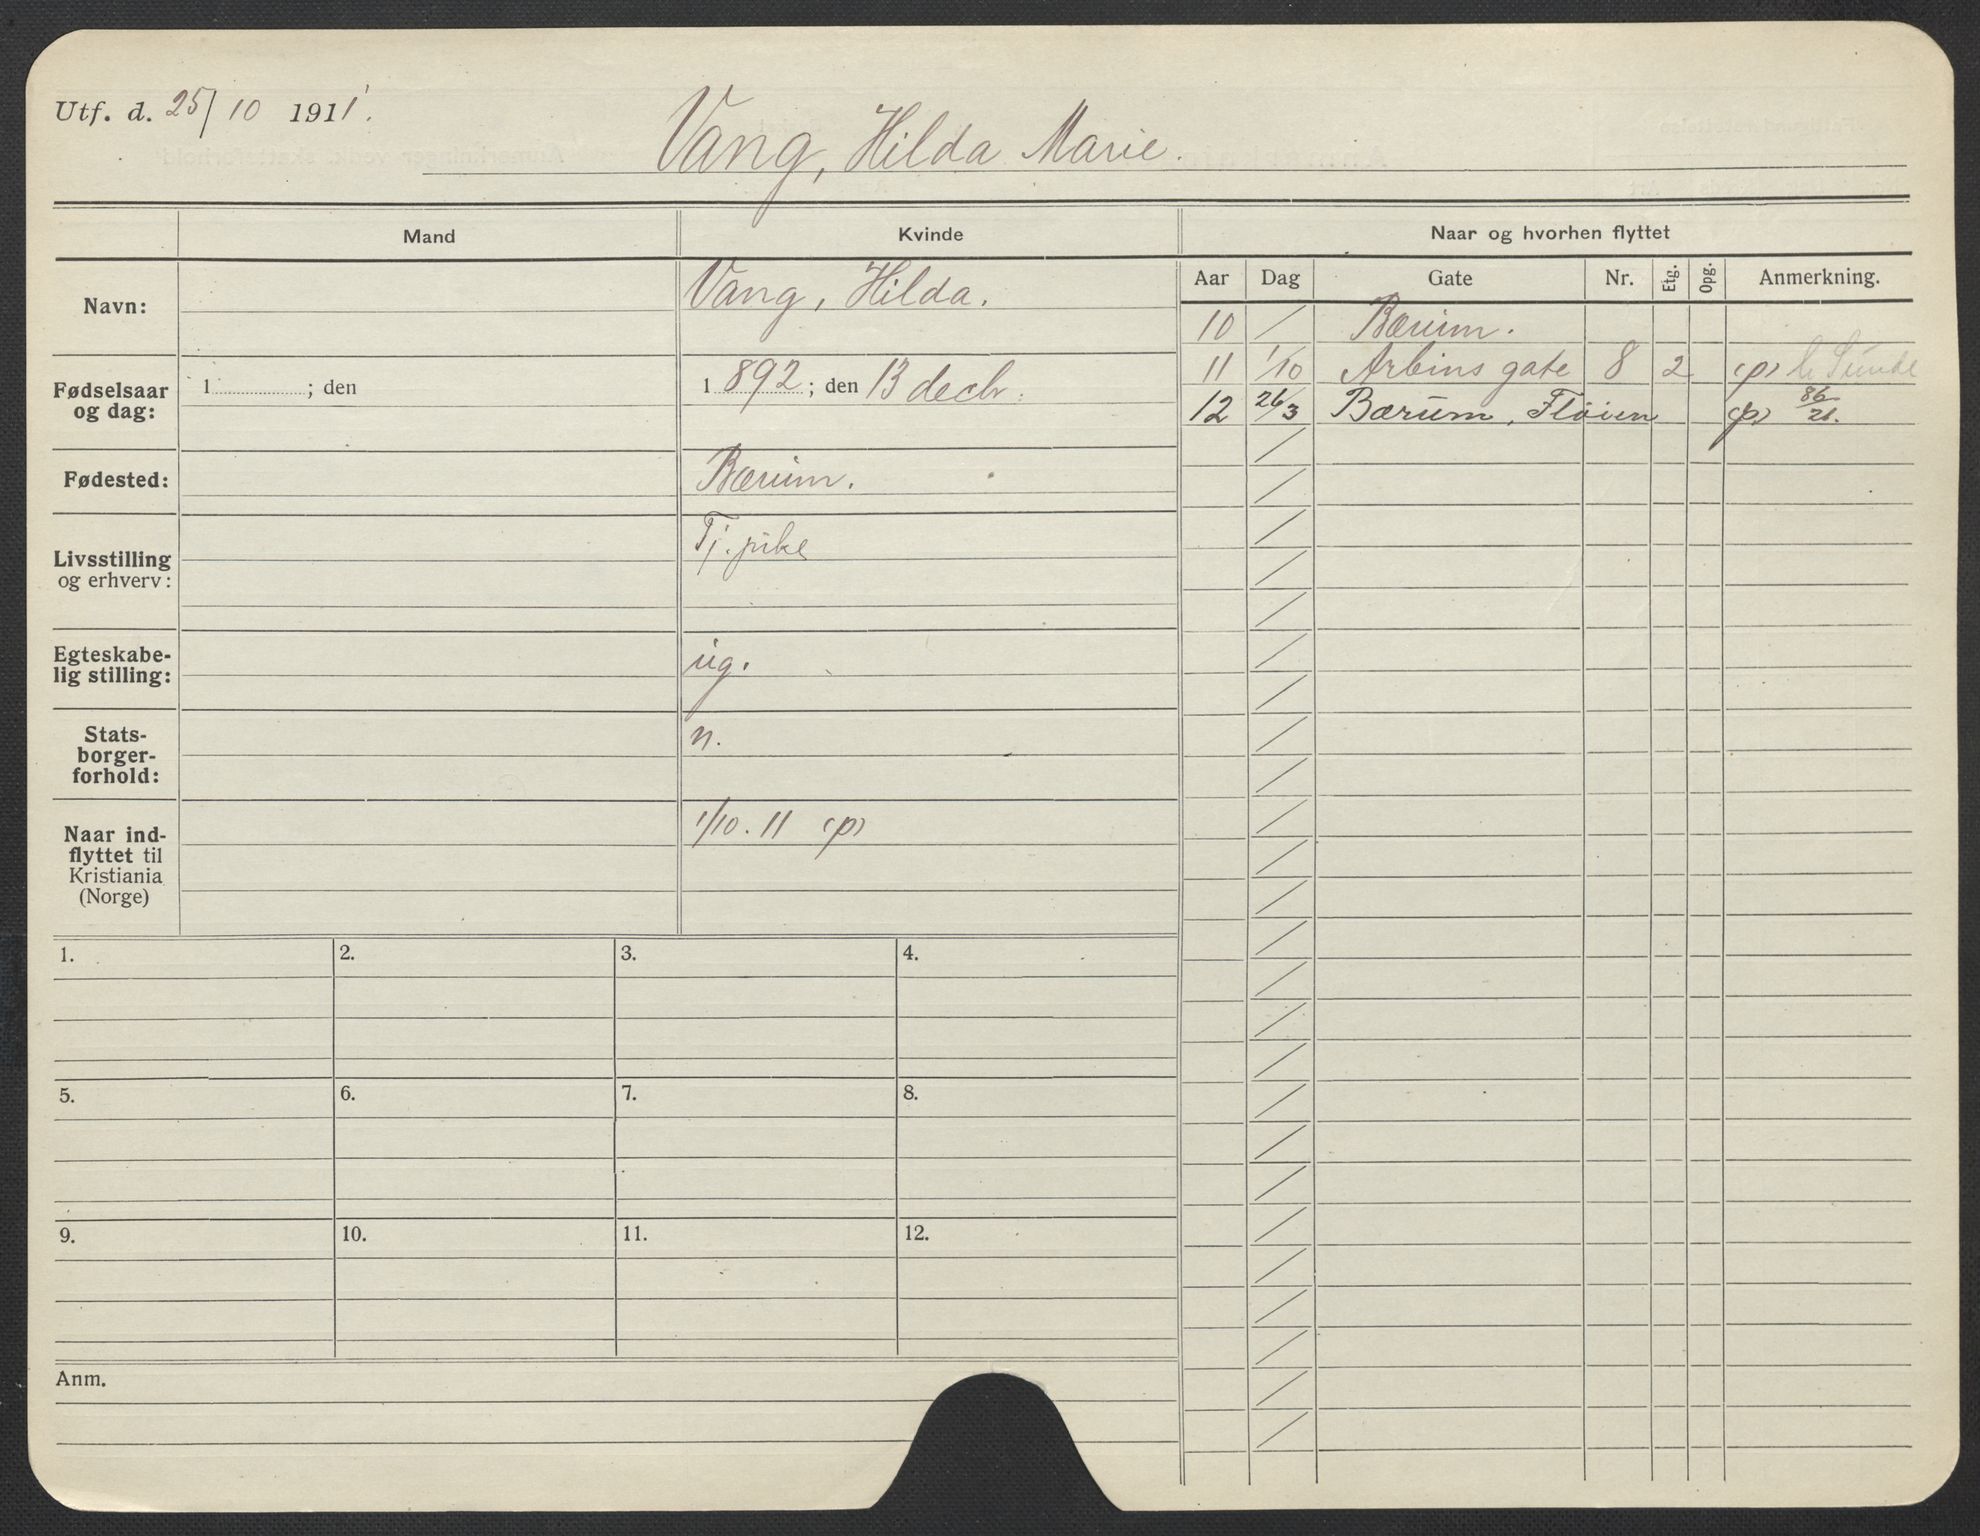 Utf. d. 25/10 1911.
Vang, Hilda Marie.
Mand
Kvinde
Naar og hvorhen flyttet
Navn:
Vang, Hilda.
Fødselsaar
og dag:
1 ; den
1 892 ; den 13 decbr.
Fødested:
Bærum.
Livsstilling
og erhverv:
Tj. pike
Egteskabe-
lig stilling:
ug.
Stats-
borger-
forhold:
n.
Naar ind-
flyttet til
Kristiania
(Norge)
1/10. 11 (p)
Aar Dag Gate Nr. Etg. Opg. Anmerkning.
10 / Bærum.
11 1/10 Arbins gate 8 2 (p) Sunde
12 26/3 Bærum, Fløien (p) 86/21.
1. 2. 3. 4.
5. 6. 7. 8.
9. 10. 11. 12.
Anm.